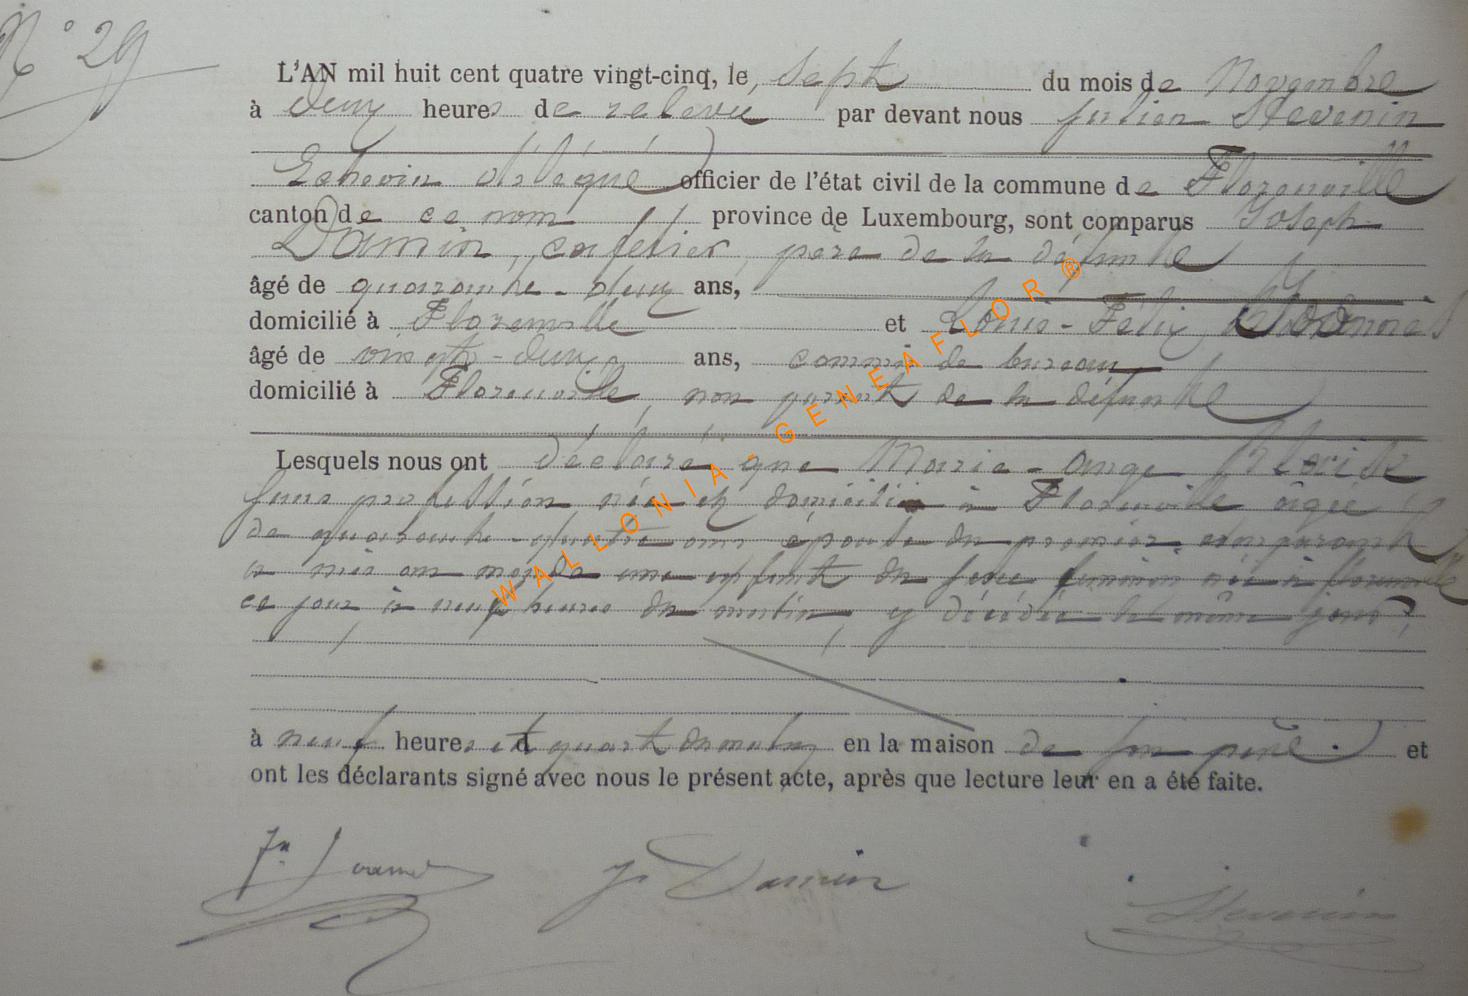 N° 29
L'AN mil huit cent quatre vingt-cinq, le sept du mois de Novembre
à deux heures de relevée par devant nous Julien Stevenin
Echevin délégué officier de l'état civil de la commune de Florenville
canton de ce nom province de Luxembourg, sont comparus Joseph
Damin, cafetier, père de la défunte
âgé de quarante-deux ans,
domicilié à Florenville et Louis-Félix
âgé de vingt-deux ans, commis de bureau
domicilié à Florenville, non parent de la défunte
Lesquels nous ont déclaré que Marie-Ange
sans profession née et domiciliée à Florenville âgée
de quarante-quatre ans épouse du premier comparant
a mis au monde une enfant du sexe féminin née à Florenville
ce jour à neuf heures du matin, y décédée le même jour,
à neuf heures et quart du matin en la maison de son père. et
ont les déclarants signé avec nous le présent acte, après que lecture leur en a été faite.
J. Damin
Stevenin
WALLONIA - GENEAFLOR ®